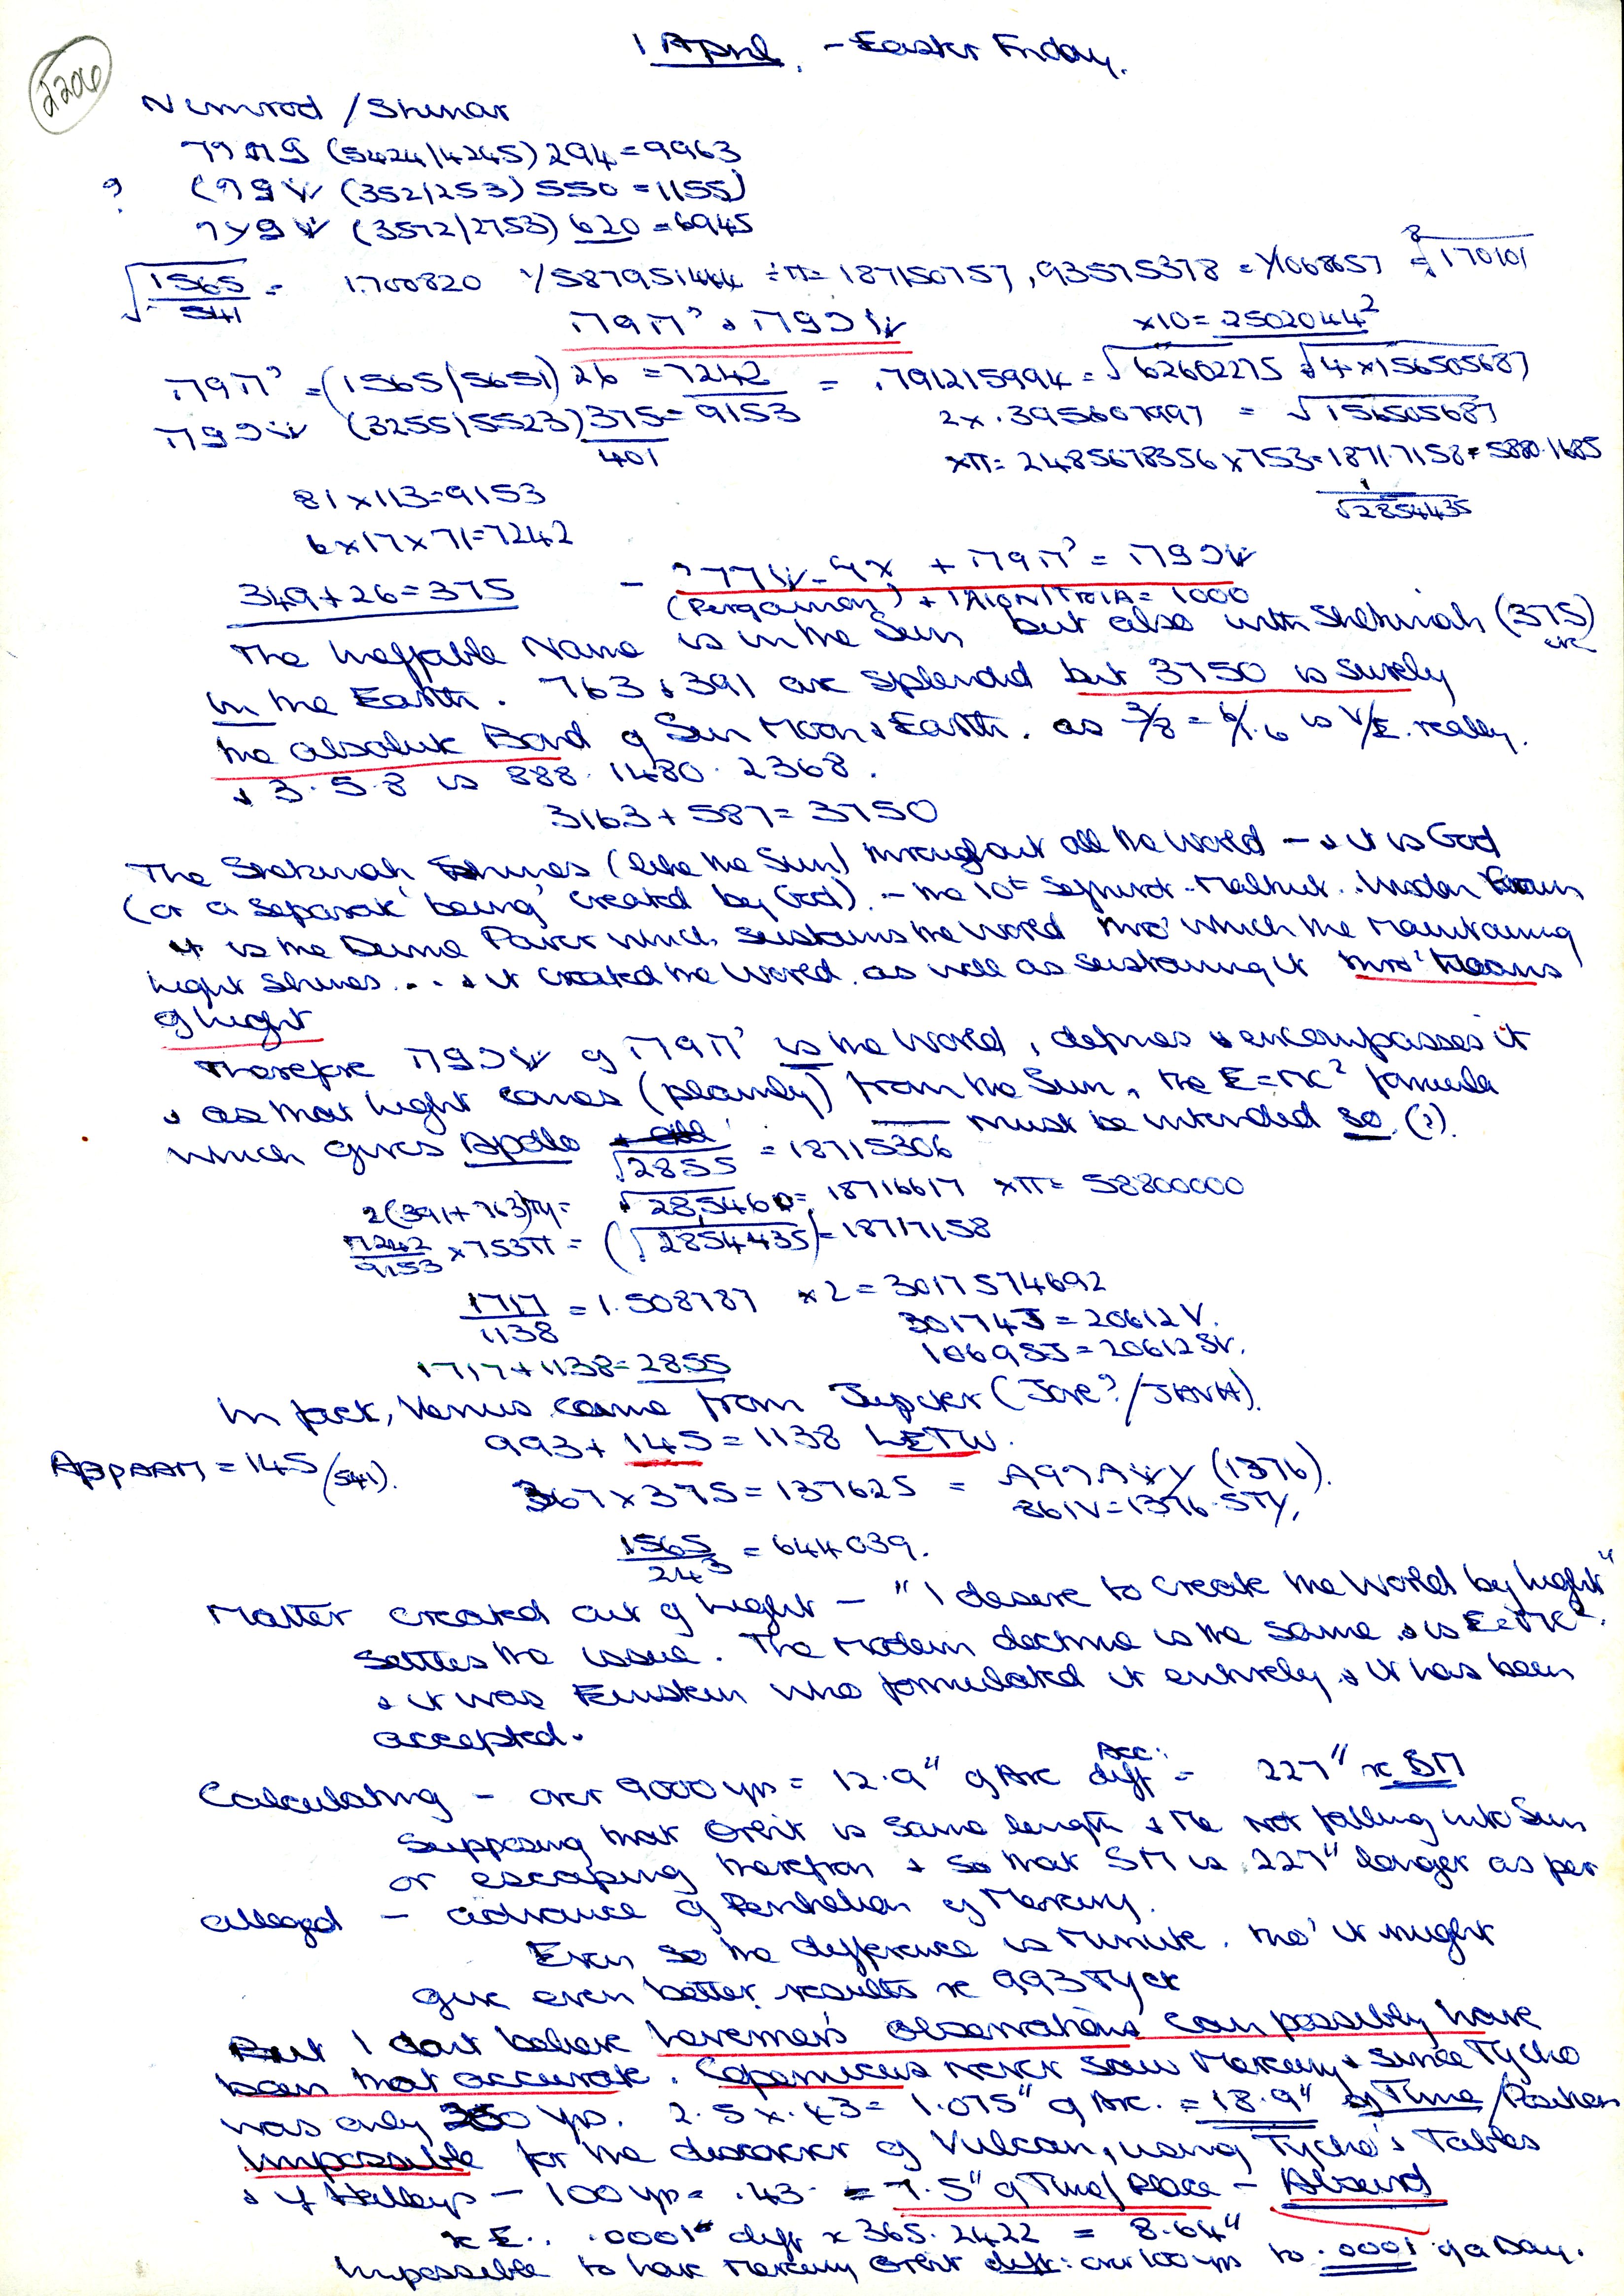 2206
1 April. - Easter Friday.
Nimrod / Shinar
(5424/4245) 294 = 9963
? (352/253) 550 = 1155)
(3572/2753) 620 = 6945
√1565/541 = 1.700820 1/587951444 ÷π= 187150757, 93575378 = 1/1068657 = 170101
יהוה & שכינה
x10 = 2502044²
יהוה = (1565/5651) 26 = 7242 = .791215994 = √62602275 √4 x 156505687
שכינה (3255/5523) 375 = 9153 2x .395607997 = √156505687
401
xπ= 2485678356 x 753 = 1871.7158 = 5880.1685
81 x 113 = 9153
1/√2854435
6 x 17 x 71 = 7242
349 + 26 = 375 - + יהוה = שכינה
(Pergamon) + = 1000
The Ineffable Name is in the Sun but also with Shekinah (375)
in the Earth. 763 & 391 are splendid but 3750 is surely
the absolute Bond of Sun Moon & Earth. as 3/8 = 6/1.6 is V/E. really.
& 3.5.8 is 888. 1480. 2368.
3163 + 587 = 3750
The Shekinah shines (like the Sun) throughout all the World - & it is God
(or a separate 'being' created by God). - the 10th Sephirot - Malkut.
it is the Divine Power which sustains the World thro' which the Maintaining
Light Shines... & it created the World. as well as sustaining it thro' Means
of Light
Therefore שכינה of יהוה is the World, defines & encompasses it
& as that light comes (plainly) from the Sun, the E=MC² formula
which gives Apollo must be intended so. (?).
√2855 = 18715306
2(391+763)Ty = √28,5460 = 18716617 xπ= 58800000
7242/9153 x 753π = (√2854435) = 18717,158
1717/1138 = 1.508787 x2 = 3017574692
30174J = 20612V.
1069SJ = 20612SV.
1717 + 1138 = 2855
In fact, Venus came from Jupiter (Jove?/JHVH).
993 + 145 = 1138 LETW.
= 145/(541).
367 x 375 = 137625 = (1376).
861V = 1376.5Ty,
1565/243 = 644039.
Matter created out of Light - "I desire to create the World by Light"
Settles the issue. The Modern doctrine is the same. & is E=MC².
& it was Einstein who formulated it entirely, & it has been
accepted.
Calculating - over 9000 yrs = 12.9" of Arc Acc: diff = 227" x SM
Supposing that Orbit is same length & Me not falling into Sun
or escaping therefrom & so that SM is 227" longer as per
alleged - advance of Perihelion of Mercury.
Even so the difference is Minute. tho' it might
give even better results re 993 Ty etc
But I dont believe Leverrier's observations can possibly have
been that accurate. Copernicus never saw Mercury & since Tycho
was only 250 yrs. 2.5 x .43 = 1.075" of Arc. = 18.9" of Time/Position
Impossible for the discoverer of Vulcan, using Tycho's Tables
& if Halleys - 100 yrs = .43 = 7.5" of Time/Place - Absurd
x E.. .0001 diff x 365.2422 = 8.64"
Impossible to have Mercury Orbit diff: over 100 yrs to .0001 of a Day.